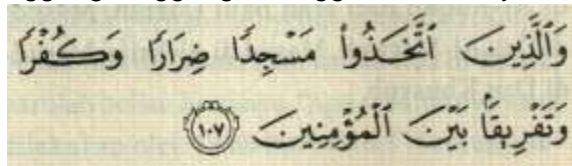 وَٱلَّذِينَ ٱتَّخَذُوا۟ مَسْجِدًا ضِرَارًا وَكُفْرًا
وَتَفْرِيقًۢا بَيْنَ ٱلْمُؤْمِنِينَ ﴿١٠٧﴾